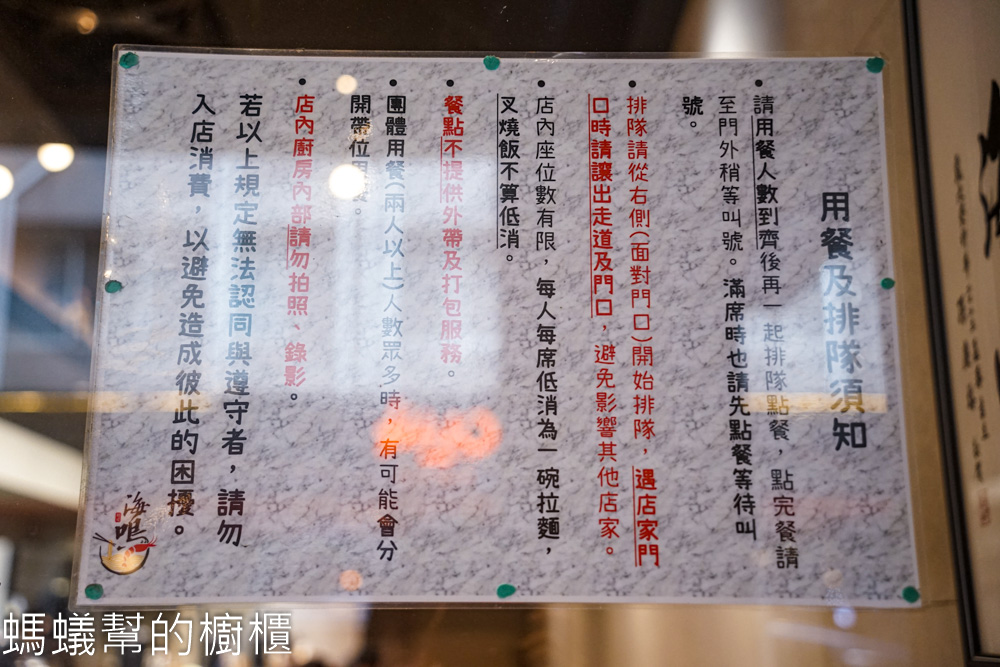 用餐及排隊須知
• 請用餐人數到齊後再一起排隊點餐，點完餐請
至門外稍等叫號。滿席時也請先點餐等待叫
號。
• 排隊請從右側(面對門口)開始排隊，遇店家門
口時請讓出走道及門口，避免影響其他店家。
• 店內座位數有限，每人每席低消為一碗拉麵，
叉燒飯不算低消。
• 餐點不提供外帶及打包服務。
• 團體用餐(兩人以上)人數眾多時，有可能會分
開帶位
• 店內廚房內部請勿拍照、錄影。
若以上規定無法認同與遵守者，請勿
入店消費，以避免造成彼此的困擾。
海鳴
螞蟻幫的櫥櫃